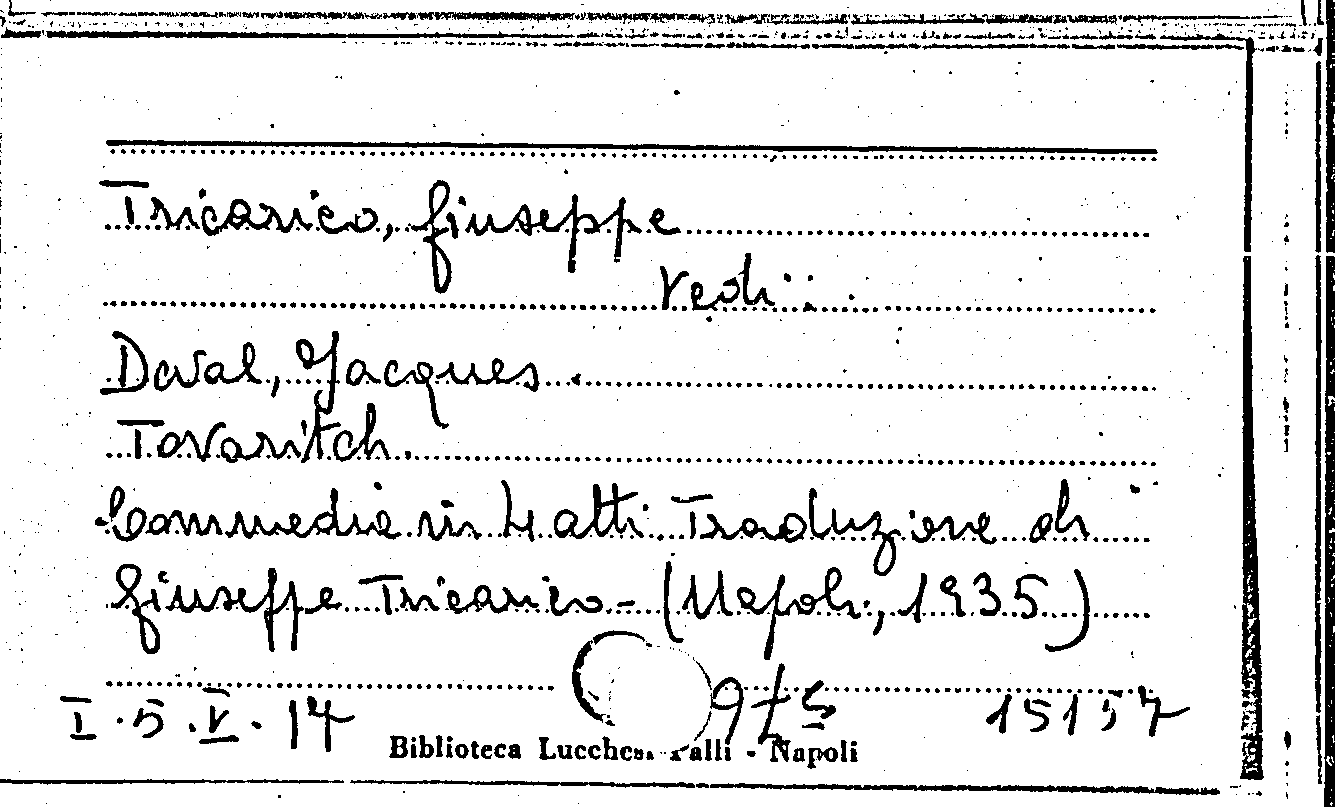 Tricarico, Giuseppe
Vedi:
Deval, Jacques.
Tovaritch.
Commedia in 4 atti. Traduzione di
Giuseppe Tricarico - (Napoli, 1935)
I.5.V.17 15157
Biblioteca Lucchesi Palli - Napoli